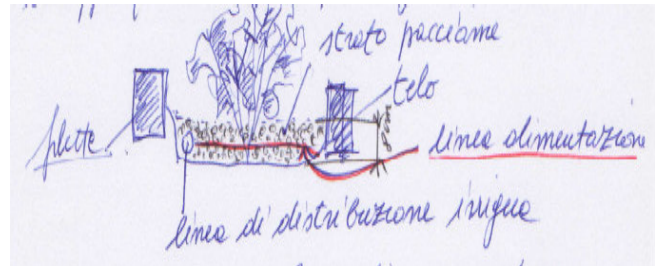 strato pacciame
telo
plette
linea alimentazione
linea di distribuzione irrigua